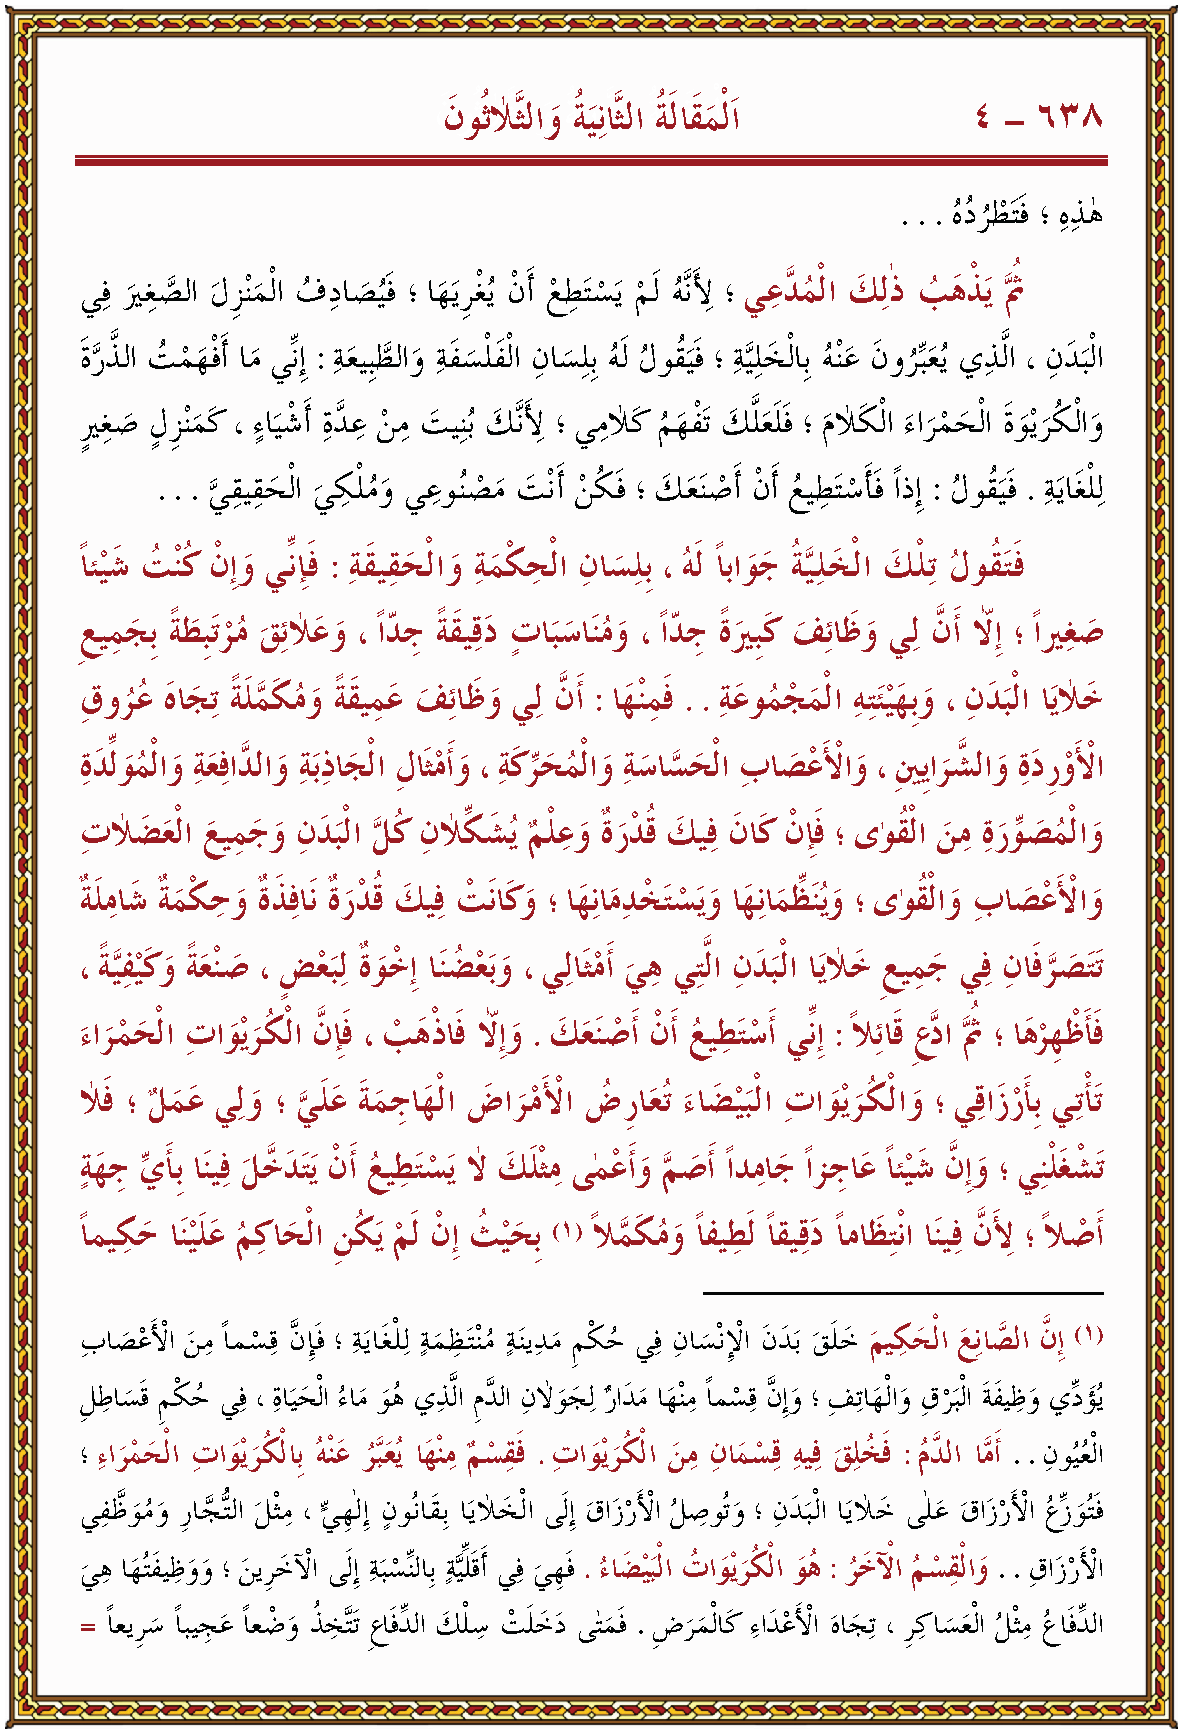 ٦٣٨ – ٤ اَلْمَقَالَةُ الثَّانِيَةُ وَالثَّلٰاثُونَ
هٰذِهِ ؛ فَتَطْرُدُهُ . . .
ثُمَّ يَذْهَبُ ذٰلِكَ الْمُدَّعِي ؛ لِأَنَّهُ لَمْ يَسْتَطِعْ أَنْ يُغْرِيَهَا ؛ فَيُصَادِفُ الْمَنْزِلَ الصَّغِيرَ فِي
الْبَدَنِ ، الَّذِي يُعَبِّرُونَ عَنْهُ بِالْخَلِيَّةِ ؛ فَيَقُولُ لَهُ بِلِسَانِ الْفَلْسَفَةِ وَالطَّبِيعَةِ : إِنِّي مَا أَفْهَمْتُ الذَّرَّةَ
وَالْكُرَيْوَةَ الْحَمْرَاءَ الْكَلٰامَ ؛ فَلَعَلَّكَ تَفْهَمُ كَلٰامِي ؛ لِأَنَّكَ بُنِيتَ مِنْ عِدَّةِ أَشْيَاءٍ ، كَمَنْزِلٍ صَغِيرٍ
لِلْغَايَةِ . فَيَقُولُ : إِذاً فَأَسْتَطِيعُ أَنْ أَصْنَعَكَ ؛ فَكُنْ أَنْتَ مَصْنُوعِي وَمُلْكِيَ الْحَقِيقِيَّ . . .
فَتَقُولُ تِلْكَ الْخَلِيَّةُ جَوَاباً لَهُ ، بِلِسَانِ الْحِكْمَةِ وَالْحَقِيقَةِ : فَإِنِّي وَإِنْ كُنْتُ شَيْئاً
صَغِيراً ؛ إِلّٰا أَنَّ لِي وَظَائِفَ كَبِيرَةً جِدّاً ، وَمُنَاسَبَاتٍ دَقِيقَةً جِدّاً ، وَعَلٰائِقَ مُرْتَبِطَةً بِجَمِيعِ
خَلٰايَا الْبَدَنِ ، وَبِهَيْئَتِهِ الْمَجْمُوعَةِ . . فَمِنْهَا : أَنَّ لِي وَظَائِفَ عَمِيقَةً وَمُكَمَّلَةً تِجَاهَ عُرُوقِ
الْأَوْرِدَةِ وَالشَّرَايِينِ ، وَالْأَعْصَابِ الْحَسَّاسَةِ وَالْمُحَرِّكَةِ ، وَأَمْثَالِ الْجَاذِبَةِ وَالدَّافِعَةِ وَالْمُوَلِّدَةِ
وَالْمُصَوِّرَةِ مِنَ الْقُوٰى ؛ فَإِنْ كَانَ فِيكَ قُدْرَةٌ وَعِلْمٌ يُشَكِّلٰانِ كُلَّ الْبَدَنِ وَجَمِيعَ الْعَضَلٰاتِ
وَالْأَعْصَابِ وَالْقُوٰى ؛ وَيُنَظِّمَانِهَا وَيَسْتَخْدِمَانِهَا ؛ وَكَانَتْ فِيكَ قُدْرَةٌ نَافِذَةٌ وَحِكْمَةٌ شَامِلَةٌ
تَتَصَرَّفَانِ فِي جَمِيعِ خَلٰايَا الْبَدَنِ الَّتِي هِيَ أَمْثَالِي ، وَبَعْضُنَا إِخْوَةٌ لِبَعْضٍ ، صَنْعَةً وَكَيْفِيَّةً ،
فَأَظْهِرْهَا ؛ ثُمَّ ادَّعِ قَائِلاً : إِنِّي أَسْتَطِيعُ أَنْ أَصْنَعَكَ . وَإِلّٰا فَاذْهَبْ ، فَإِنَّ الْكُرَيْوَاتِ الْحَمْرَاءَ
تَأْتِي بِأَرْزَاقِي ؛ وَالْكُرَيْوَاتِ الْبَيْضَاءَ تُعَارِضُ الْأَمْرَاضَ الْهَاجِمَةَ عَلَيَّ ؛ وَلِي عَمَلٌ ؛ فَلٰا
تَشْغَلْنِي ؛ وَإِنَّ شَيْئاً عَاجِزاً جَامِداً أَصَمَّ وَأَعْمٰى مِثْلَكَ لٰا يَسْتَطِيعُ أَنْ يَتَدَخَّلَ فِينَا بِأَيِّ جِهَةٍ
أَصْلاً ؛ لِأَنَّ فِينَا انْتِظَاماً دَقِيقاً لَطِيفاً وَمُكَمَّلاً (١) بِحَيْثُ إِنْ لَمْ يَكُنِ الْحَاكِمُ عَلَيْنَا حَكِيماً
(١) إِنَّ الصَّانِعَ الْحَكِيمَ خَلَقَ بَدَنَ الْإِنْسَانِ فِي حُكْمِ مَدِينَةٍ مُنْتَظِمَةٍ لِلْغَايَةِ ؛ فَإِنَّ قِسْماً مِنَ الْأَعْصَابِ
يُؤَدِّي وَظِيفَةَ الْبَرْقِ وَالْهَاتِفِ ؛ وَإِنَّ قِسْماً مِنْهَا مَدَارٌ لِجَوَلٰانِ الدَّمِ الَّذِي هُوَ مَاءُ الْحَيَاةِ ، فِي حُكْمِ قَسَاطِلِ
الْعُيُونِ . . أَمَّا الدَّمُ : فَخُلِقَ فِيهِ قِسْمَانِ مِنَ الْكُرَيْوَاتِ . فَقِسْمٌ مِنْهَا يُعَبَّرُ عَنْهُ بِالْكُرَيْوَاتِ الْحَمْرَاءِ ؛
فَتُوَزِّعُ الْأَرْزَاقَ عَلٰى خَلٰايَا الْبَدَنِ ؛ وَتُوصِلُ الْأَرْزَاقَ إِلَى الْخَلٰايَا بِقَانُونٍ إِلٰهِيٍّ ، مِثْلَ التُّجَّارِ وَمُوَظَّفِي
الْأَرْزَاقِ . . وَالْقِسْمُ الْآخَرُ : هُوَ الْكُرَيْوَاتُ الْبَيْضَاءُ . فَهِيَ فِي أَقَلِّيَّةٍ بِالنِّسْبَةِ إِلَى الْآخَرِينَ ؛ وَوَظِيفَتُهَا هِيَ
الدِّفَاعُ مِثْلُ الْعَسَاكِرِ ، تِجَاهَ الْأَعْدَاءِ كَالْمَرَضِ . فَمَتٰى دَخَلَتْ سِلْكَ الدِّفَاعِ تَتَّخِذُ وَضْعاً عَجِيباً سَرِيعاً =